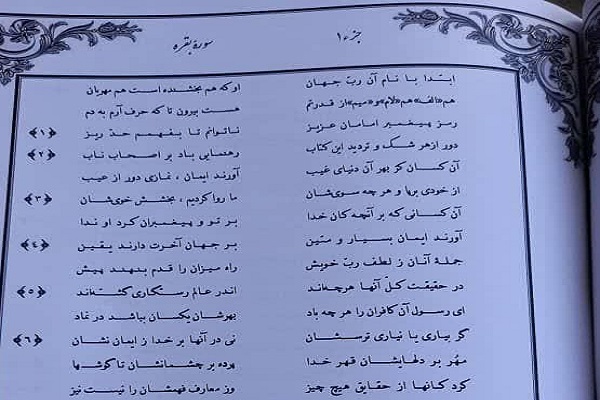 جزء ۱
سورهٔ بقره
ابتدا با نام آن ربّ جهان او که هم بخشنده است هم مهربان
هم«الف»هم«لام»و«میم»از قدرتم هست بیرون تا که حرف آرم به دم
رمز پیغمبر امامان عزیز ناتوانم تا بفهمم جدّ ریز ﴿۱﴾
دور از هر شک و تردید این کتاب رهنمایی باد بر اصحاب ناب ﴿۲﴾
آن کسان کز بهر آن دنیای غیب آورند ایمان ، نمازی دور از عیب
از خودی برها و هر چه سوی‌شان ما روا کردیم ، بخشش خوی‌شان ﴿۳﴾
آن کسانی که بر آنچه کان خدا بر تو و پیغمبران کرد او ندا
آورند ایمان بسیار و متین بر جهان آخرت دارند یقین ﴿۴﴾
جملهٔ آنان ز لطف ربّ خویش راه میزان را قدم بنهند پیش
در حقیقت کلّ آنها هرچه‌اند اندر عالم رستگاری گشته‌اند ﴿۵﴾
ای رسول آن کافران را هر چه باد بهرشان یکسان بباشد در نماد
گر بیاری یا نیاری ترسشان نی در آنها بر خدا ز ایمان نشان ﴿۶﴾
مُهر بر دلهایشان قهر خدا پرده بر چشمانشان تا گوشها
کرد کآنها از حقایق هیچ چیز وز معارف فهمشان را نیست نیز